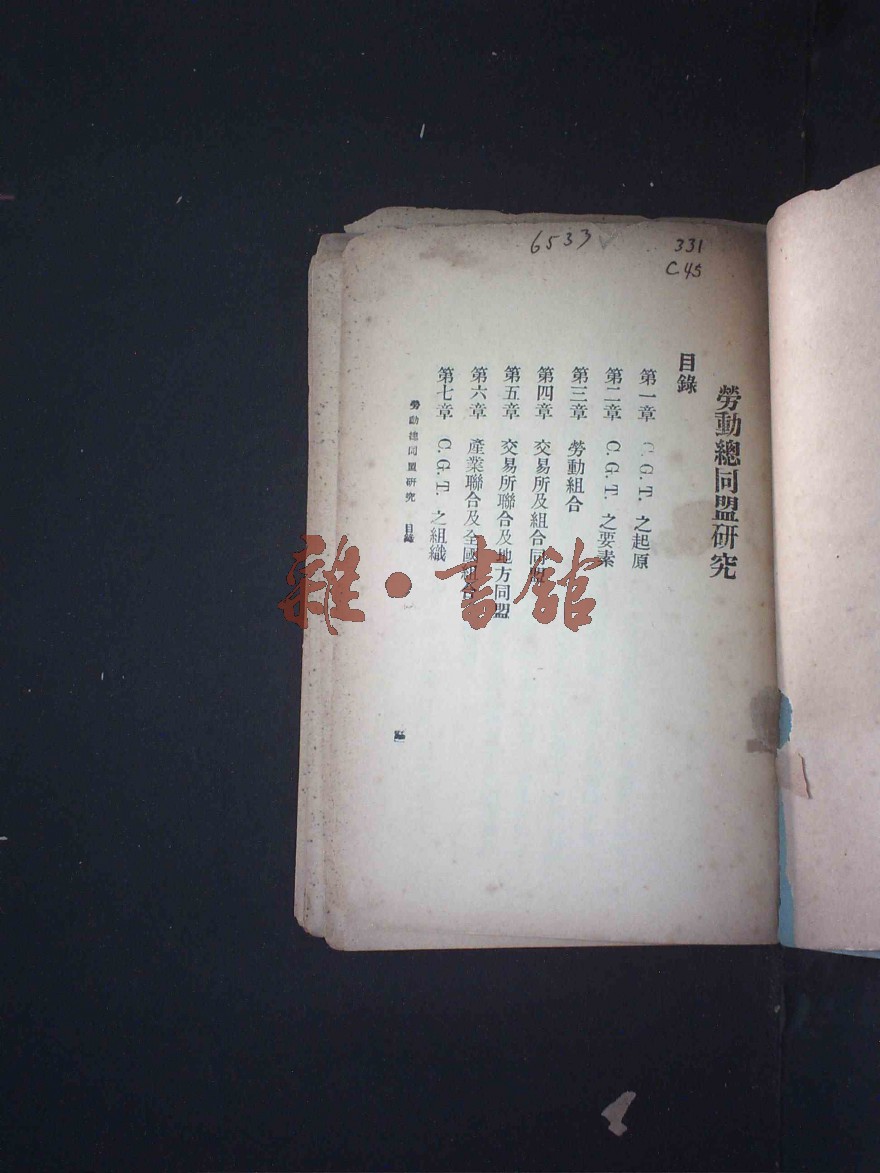 6533
331
C45
勞動總同盟研究
目錄
第一章 C.G.T. 之起原
第二章 C.G.T. 之要素
第三章 勞動組合
第四章 交易所及組合同盟
第五章 交易所聯合及地方同盟
第六章 產業聯合及全國組合
第七章 C.G.T. 之組織
勞動總同盟研究 目錄
雜·書館